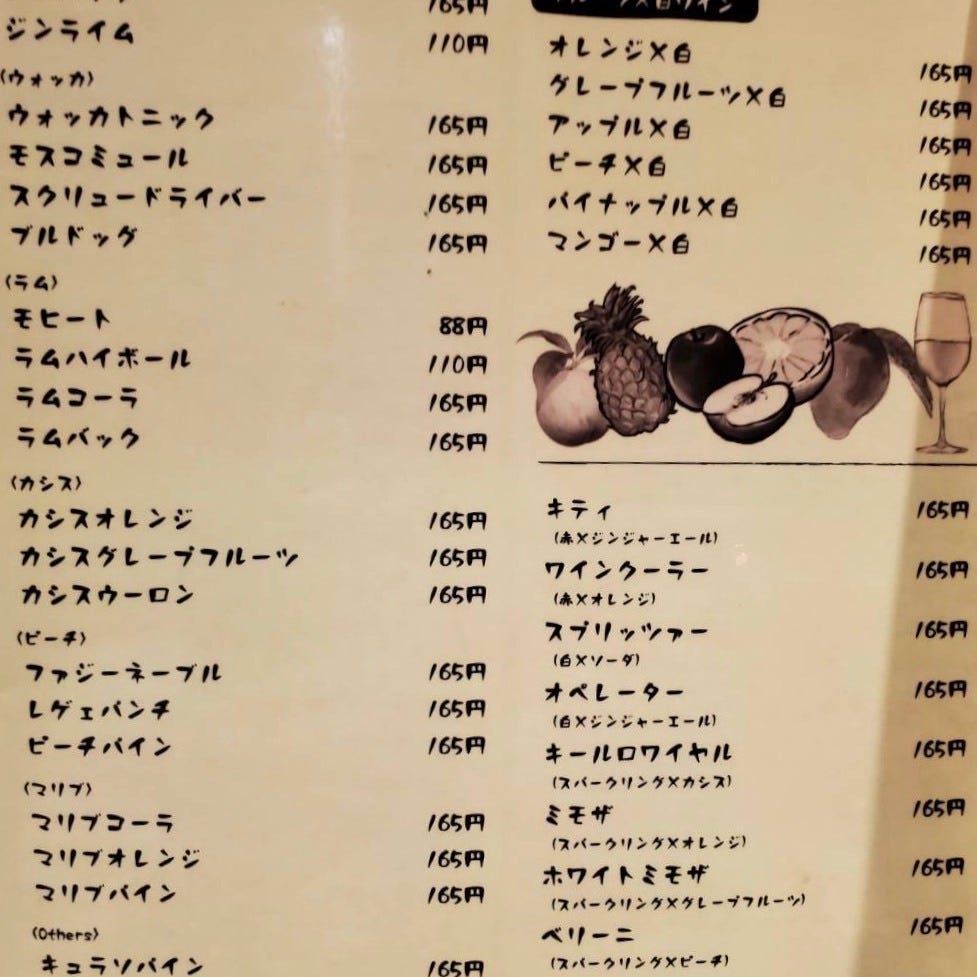 165円
ジンライム 110円
(ウォッカ)
ウォッカトニック 165円
モスコミュール 165円
スクリュードライバー 165円
ブルドッグ 165円
(ラム)
モヒート 88円
ラムハイボール 110円
ラムコーラ 165円
ラムバック 165円
(カシス)
カシスオレンジ 165円
カシスグレープフルーツ 165円
カシスウーロン 165円
(ピーチ)
ファジーネーブル 165円
レゲエパンチ 165円
ピーチパイン 165円
(マリブ)
マリブコーラ 165円
マリブオレンジ 165円
マリブパイン 165円
(Others)
キュラソパイン 165円
オレンジ×白 165円
グレープフルーツ×白 165円
アップル×白 165円
ピーチ×白 165円
パイナップル×白 165円
マンゴー×白 165円
キティ 165円
(赤×ジンジャーエール)
ワインクーラー 165円
(赤×オレンジ)
スプリッツァー 165円
(白×ソーダ)
オペレーター 165円
(白×ジンジャーエール)
キールロワイヤル 165円
(スパークリング×カシス)
ミモザ 165円
(スパークリング×オレンジ)
ホワイトミモザ 165円
(スパークリング×グレープフルーツ)
ベリーニ 165円
(スパークリング×ピーチ)